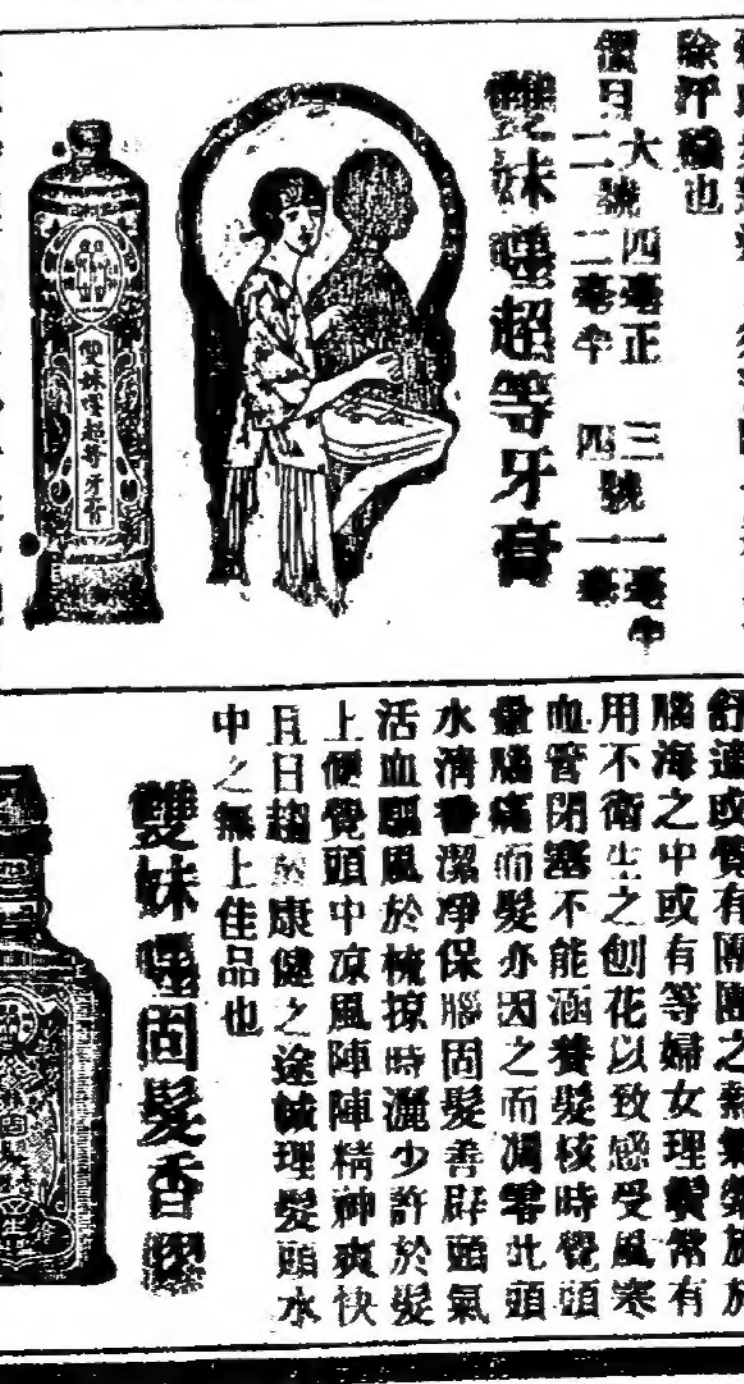 除汗穢也
價目
大號四毫正
二號二毫半
三號一毫半
四號一毫
雙妹嚜超等牙膏
雙妹嚜超等牙膏
舒適或覺有團團之熱氣
腦海之中或有等婦女理鬢常有
用不衛生之刨花以致感受風寒
血管閉塞不能涵養髮核時覺頭
暈腦痛而髮亦因之而凋零此頭
水清香潔凈保腦固髮善辟頭氣
活血驅風於梳掠時灑少許於髮
上便覺頭中凉風陣陣精神爽快
且日趨於康健之途誠理髮頭水
中之無上佳品也
雙妹嚜固髮香
固髮